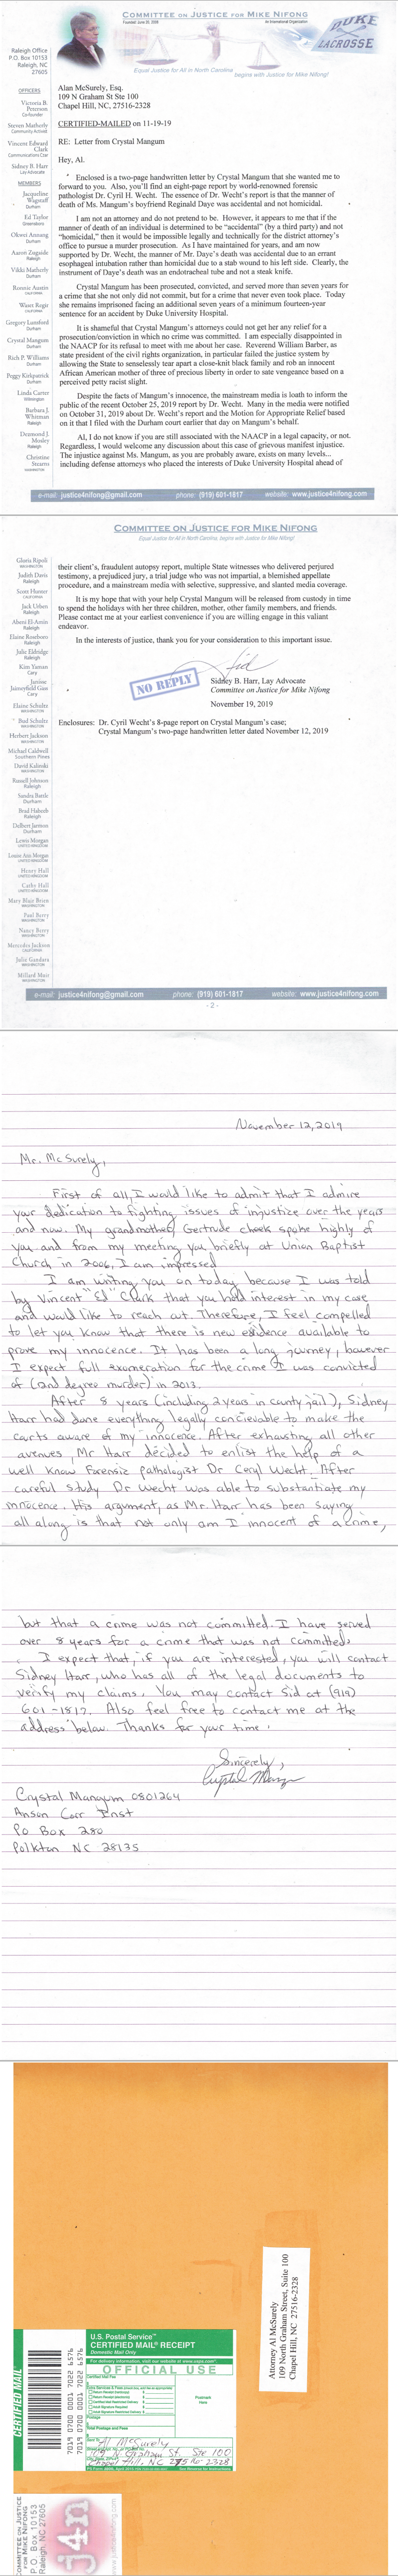 COMMITTEE ON JUSTICE FOR MIKE NIFONG
Founded June 20, 2008
An International Organization
DUKE
LACROSSE
Equal Justice for All in North Carolina
begins with Justice for Mike Nifong!
Raleigh Office
P.O. Box 10153
Raleigh, NC
27605
OFFICERS
Victoria B.
Peterson
Co-founder
Steven Matherly
Community Activist
Vincent Edward
Clark
Communications Czar
Sidney B. Harr
Lay Advocate
MEMBERS
Jacqueline
Wagstaff
Durham
Ed Taylor
Greensboro
Okwei Annang
Durham
Aaron Zugaide
Raleigh
Vikki Matherly
Durham
Ronnie Austin
CALIFORNIA
Wuzet Regir
CALIFORNIA
Gregory Lunsford
Durham
Crystal Mangum
Durham
Rich P. Williams
Durham
Peggy Kirkpatrick
Durham
Linda Carter
Wilmington
Barbara J.
Whitman
Raleigh
Desmond J.
Mosley
Raleigh
Christine
Stearns
WASHINGTON
Alan McSurely, Esq.
109 N Graham St Ste 100
Chapel Hill, NC, 27516-2328
CERTIFIED-MAILED on 11-19-19
RE: Letter from Crystal Mangum
Hey, Al.
Enclosed is a two-page handwritten letter by Crystal Mangum that she wanted me to
forward to you. Also, you'll find an eight-page report by world-renowned forensic
pathologist Dr. Cyril H. Wecht. The essence of Dr. Wecht's report is that the manner of
death of Ms. Mangum's boyfriend Reginald Daye was accidental and not homicidal.
I am not an attorney and do not pretend to be. However, it appears to me that if the
manner of death of an individual is determined to be "accidental" (by a third party) and not
"homicidal," then it would be impossible legally and technically for the district attorney's
office to pursue a murder prosecution. As I have maintained for years, and am now
supported by Dr. Wecht, the manner of Mr. Daye's death was accidental due to an errant
esophageal intubation rather than homicidal due to a stab wound to his left side. Clearly, the
instrument of Daye's death was an endotracheal tube and not a steak knife.
Crystal Mangum has been prosecuted, convicted, and served more than seven years for
a crime that she not only did not commit, but for a crime that never even took place. Today
she remains imprisoned facing an additional seven years of a minimum fourteen-year
sentence for an accident by Duke University Hospital.
It is shameful that Crystal Mangum's attorneys could not get her any relief for a
prosecution/conviction in which no crime was committed. I am especially disappointed in
the NAACP for its refusal to meet with me about her case. Reverend William Barber, as
state president of the civil rights organization, in particular failed the justice system by
allowing the State to senselessly tear apart a close-knit black family and rob an innocent
African American mother of three of precious liberty in order to sate vengeance based on a
perceived petty racist slight.
Despite the facts of Mangum's innocence, the mainstream media is loath to inform the
public of the recent October 25, 2019 report by Dr. Wecht. Many in the media were notified
on October 31, 2019 about Dr. Wecht's report and the Motion for Appropriate Relief based
on it that I filed with the Durham court that day on Mangum's behalf.
Al, I do not know if you are still associated with the NAACP in a legal capacity, or not.
Regardless, I would welcome any discussion about this case of grievous manifest injustice.
The injustice against Ms. Mangum, as you are probably aware, exists on many levels...
including defense attorneys who placed the interests of Duke University Hospital ahead of
e-mail: justice4nifong@gmail.com phone: (919) 601-1817 website: www.justice4nifong.com
COMMITTEE ON JUSTICE FOR MIKE NIFONG
Equal Justice for All in North Carolina, begins with Justice for Mike Nifong!
Gloria Ripoli
WASHINGTON
Judith Davis
Raleigh
Scott Hunter
CALIFORNIA
Jack Urben
Raleigh
Abeni El-Amin
Raleigh
Elaine Roseboro
Raleigh
Julie Eldridge
Raleigh
Kim Yaman
Cary
Janine
Jaimeyfield Gise
Cary
Elaine Schultz
WASHINGTON
Bud Schultz
WASHINGTON
Herbert Jackson
WASHINGTON
Michael Caldwell
Southern Pines
David Kalinski
WASHINGTON
Russell Johnson
Raleigh
Sandra Battle
Durham
Brad Habeeb
Raleigh
Delbert Jarmon
Durham
Lewis Morgan
UNITED KINGDOM
Louise Ann Morgan
UNITED KINGDOM
Henry Hull
UNITED KINGDOM
Cathy Hull
UNITED KINGDOM
Mary Blair Brien
WASHINGTON
Paul Berry
WASHINGTON
Nancy Berry
WASHINGTON
Mercedes Jackson
CALIFORNIA
Julio Gandara
WASHINGTON
Millard Muir
WASHINGTON
their client's, fraudulent autopsy report, multiple State witnesses who delivered perjured
testimony, a prejudiced jury, a trial judge who was not impartial, a blemished appellate
procedure, and a mainstream media with selective, suppressive, and slanted media coverage.
It is my hope that with your help Crystal Mangum will be released from custody in time
to spend the holidays with her three children, mother, other family members, and friends.
Please contact me at your earliest convenience if you are willing engage in this valiant
endeavor.
In the interests of justice, thank you for your consideration to this important issue.
Sid
NO REPLY
Sidney B. Harr, Lay Advocate
Committee on Justice for Mike Nifong
November 19, 2019
Enclosures: Dr. Cyril Wecht's 8-page report on Crystal Mangum's case;
Crystal Mangum's two-page handwritten letter dated November 12, 2019
e-mail: justice4nifong@gmail.com phone: (919) 601-1817 website: www.justice4nifong.com
- 2 -
November 12, 2019
Mr. McSurely,
First of all, I would like to admit that I admire
your dedication to fighting issues of injustice over the years
and now. My grandmother, Gertrude cheek spoke highly of
you and from my meeting you briefly at Union Baptist
Church in 2006, I am impressed
I am writing you on today because I was told
by Vincent "Ed" Clark that you held interest in my case
and would like to reach out. Therefore, I feel compelled
to let you know that there is new evidence available to
prove my innocence. It has been a long journey, however
I expect full exoneration for the crime I was convicted
of (2nd degree murder) in 2013.
After 8 years (including 2 years in county jail), Sidney
Harr had done everything legally concievable to make the
courts aware of my innocence. After exhausting all other
avenues, Mr Harr decided to enlist the help of a
well know Forensic pathologist Dr Ceryl Wecht. After
careful study Dr Wecht was able to substantiate my
innocence. His argument, as Mr. Harr has been saying
all along is that not only am I innocent of a crime,
but that a crime was not committed. I have served
over 8 years for a crime that was not committed.
I expect that, if you are interested, you will contact
Sidney Harr, who has all of the legal documents to
verify my claims. You may contact Sid at (919)
601-1817. Also feel free to contact me at the
address below. Thanks for your time.
Sincerely,
Crystal Mangum
Crystal Mangum 0801264
Anson Corr Inst
Po Box 280
Polkton NC 28135
Attorney Al McSurely
109 North Graham Street, Suite 100
Chapel Hill, NC 27516-2328
CERTIFIED MAIL
7019 0700 0001 7022 6576
7019 0700 0001 7022 6576
U.S. Postal Service™
CERTIFIED MAIL® RECEIPT
Domestic Mail Only
For delivery information, visit our website at www.usps.com®.
OFFICIAL USE
Certified Mail Fee
$
Extra Services & Fees (check box, add fee as appropriate)
Return Receipt (hardcopy) $
Return Receipt (electronic) $
Certified Mail Restricted Delivery $
Adult Signature Required $
Adult Signature Restricted Delivery $
Postmark
Here
Postage
$
Total Postage and Fees
$
Sent To
Al McSurely
109 N Graham St. Ste 100
Chapel Hill, NC 27516-2328
See Reverse for Instructions
COMMITTEE ON JUSTICE
FOR MIKE NIFONG
P.O. Box 10153
Raleigh, NC 27605
j4n
www.justice4nifong.com